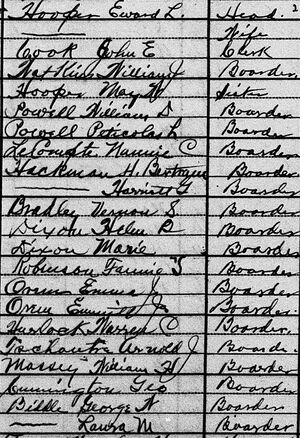 Hooper Eward L. Head
Wife
Cook John E. Clerk
Watkins William J Boarder
Hooper May W. Sister
Powell William D Boarder
Powell L Boarder
LeCompte Nannie C Boarder
Hackman H. Boarder
Harriett G Boarder
Bradley Vernon S. Boarder
Dixon Helen P. Boarder
Dixon Marie Boarder
Robinson Fannie S Boarder
Orem Emma J. Boarder
Orem Boarder.
Hurlock Warren C Boarder.
Arnold J Boarde.
Massey William H Boarder
Geo Boarder
Biddle George N Boarder
Laura M Boarder